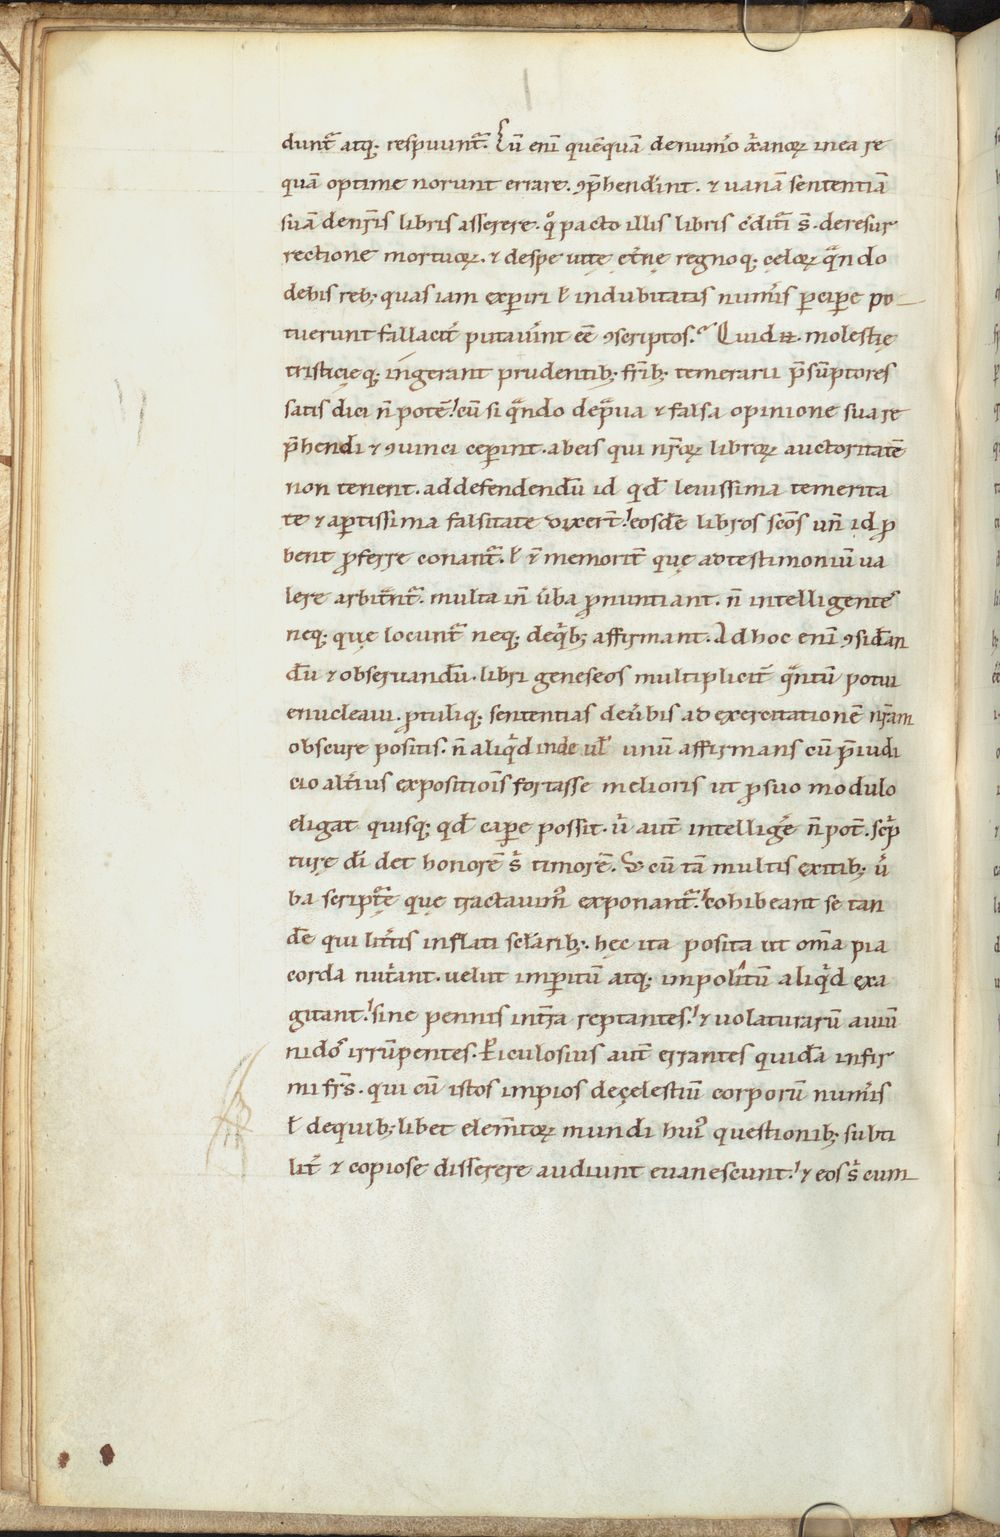 dunt᷑ atq; respuunt᷑. Cū eni quēquā denum̅o xp̅ianoꝝ in ea re
quā optime norunt errare. ꝯp̅hendint. ⁊ uanā sententiā
suā de nr̅is libris asserere. qͦ pacto illis libris c̅dit᷑i s̅. de resur
rectione mortuoꝝ. ⁊ de spe uite et̅ne regnoq; celoꝝ qͣndo
de his reb; quas iam experiri ł indubitatis num̅is ꝑcipe po
tuerunt fallacit̅ putauint eē ꝯscriptos. Quid n̅. molestię
tristicięq; ingerant prudentib; fr̅ib; temerarii p̅sūptores
satis dici n̅ potē! cū si qͣndo de p̅ua ⁊ falsa opinione sua re
p̅hendi ⁊ ꝯuinci ceꝑint. ab eis qui nr̅oꝝ libroꝝ auctoritatē
non tenent. ad defendendū id qd̅ leuissima temerita
te ⁊ aꝑtissima falsitate dixer̅t! eosdē libros sc̅os un̅ id ꝓ
bent ꝓferre conant᷑. ł &̅ memorit̅ quę ad testimoniū ua
lere arbit̅nt᷑. multa in̅ u̅ba ꝓnuntiant. n̅ intelligentes
neq; quę locunt᷑ neq; de qͥb; affirmant. Ad hoc eni ꝯsid̅an
dū ⁊ obseruandū. libri geneseos multiplicit̅ qͣntū potui
enucleaui. ꝓtuliq; sententias de u̅bis ad exercitationē nr̅am
obscure positis. n̅ aliqͥd inde ul̅ unū affirmans cū p̅iudi
cio alt̅ius expositiōis fortasse melioris ut ꝓ suo modulo
eligat quisq; qd̅ cape possit. u̅ aut̅ intellige̅ n̅ pot̅. sc̅p
ture di̅ det honorē s̅ timorē. Sꝫ cū tā multis exitib; u̅
ba script᷑e quę tractauim᷒ exponant᷑! cohibeant se tan
dē qui lit̅is inflati sc̅larib;. hęc ita posita ut om̅a pia
corda nut̅iant. uelut imꝑitū atq; impolitū aliqͥd exa
gitant! sine pennis int̅ra reptantes! ⁊ uolaturarū auiū
nidos irrūpentes. Ꝑiculosius aut̅ errantes quidā infir
mi fr̅s. qui cū istos impios de cęlestiū corporū num̅is
ł de quib; libet elem̅toꝝ mundi hui᷒ questionib; subti
lit̅ ⁊ copiose disserere audiunt euanescunt! ⁊ eos s̅ cum